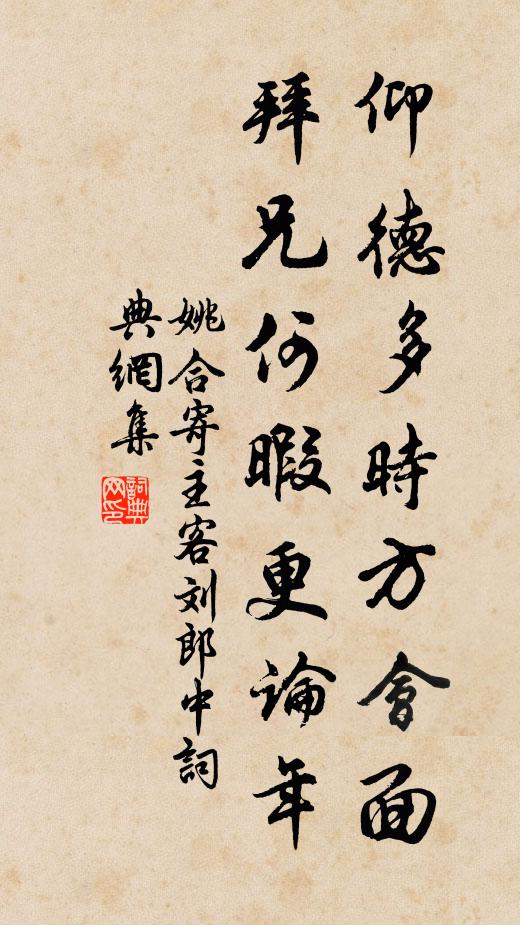 仰德多時方會面
拜兄何暇更論年
姚合寄主客刘郎中詞
典網集
詞典網印